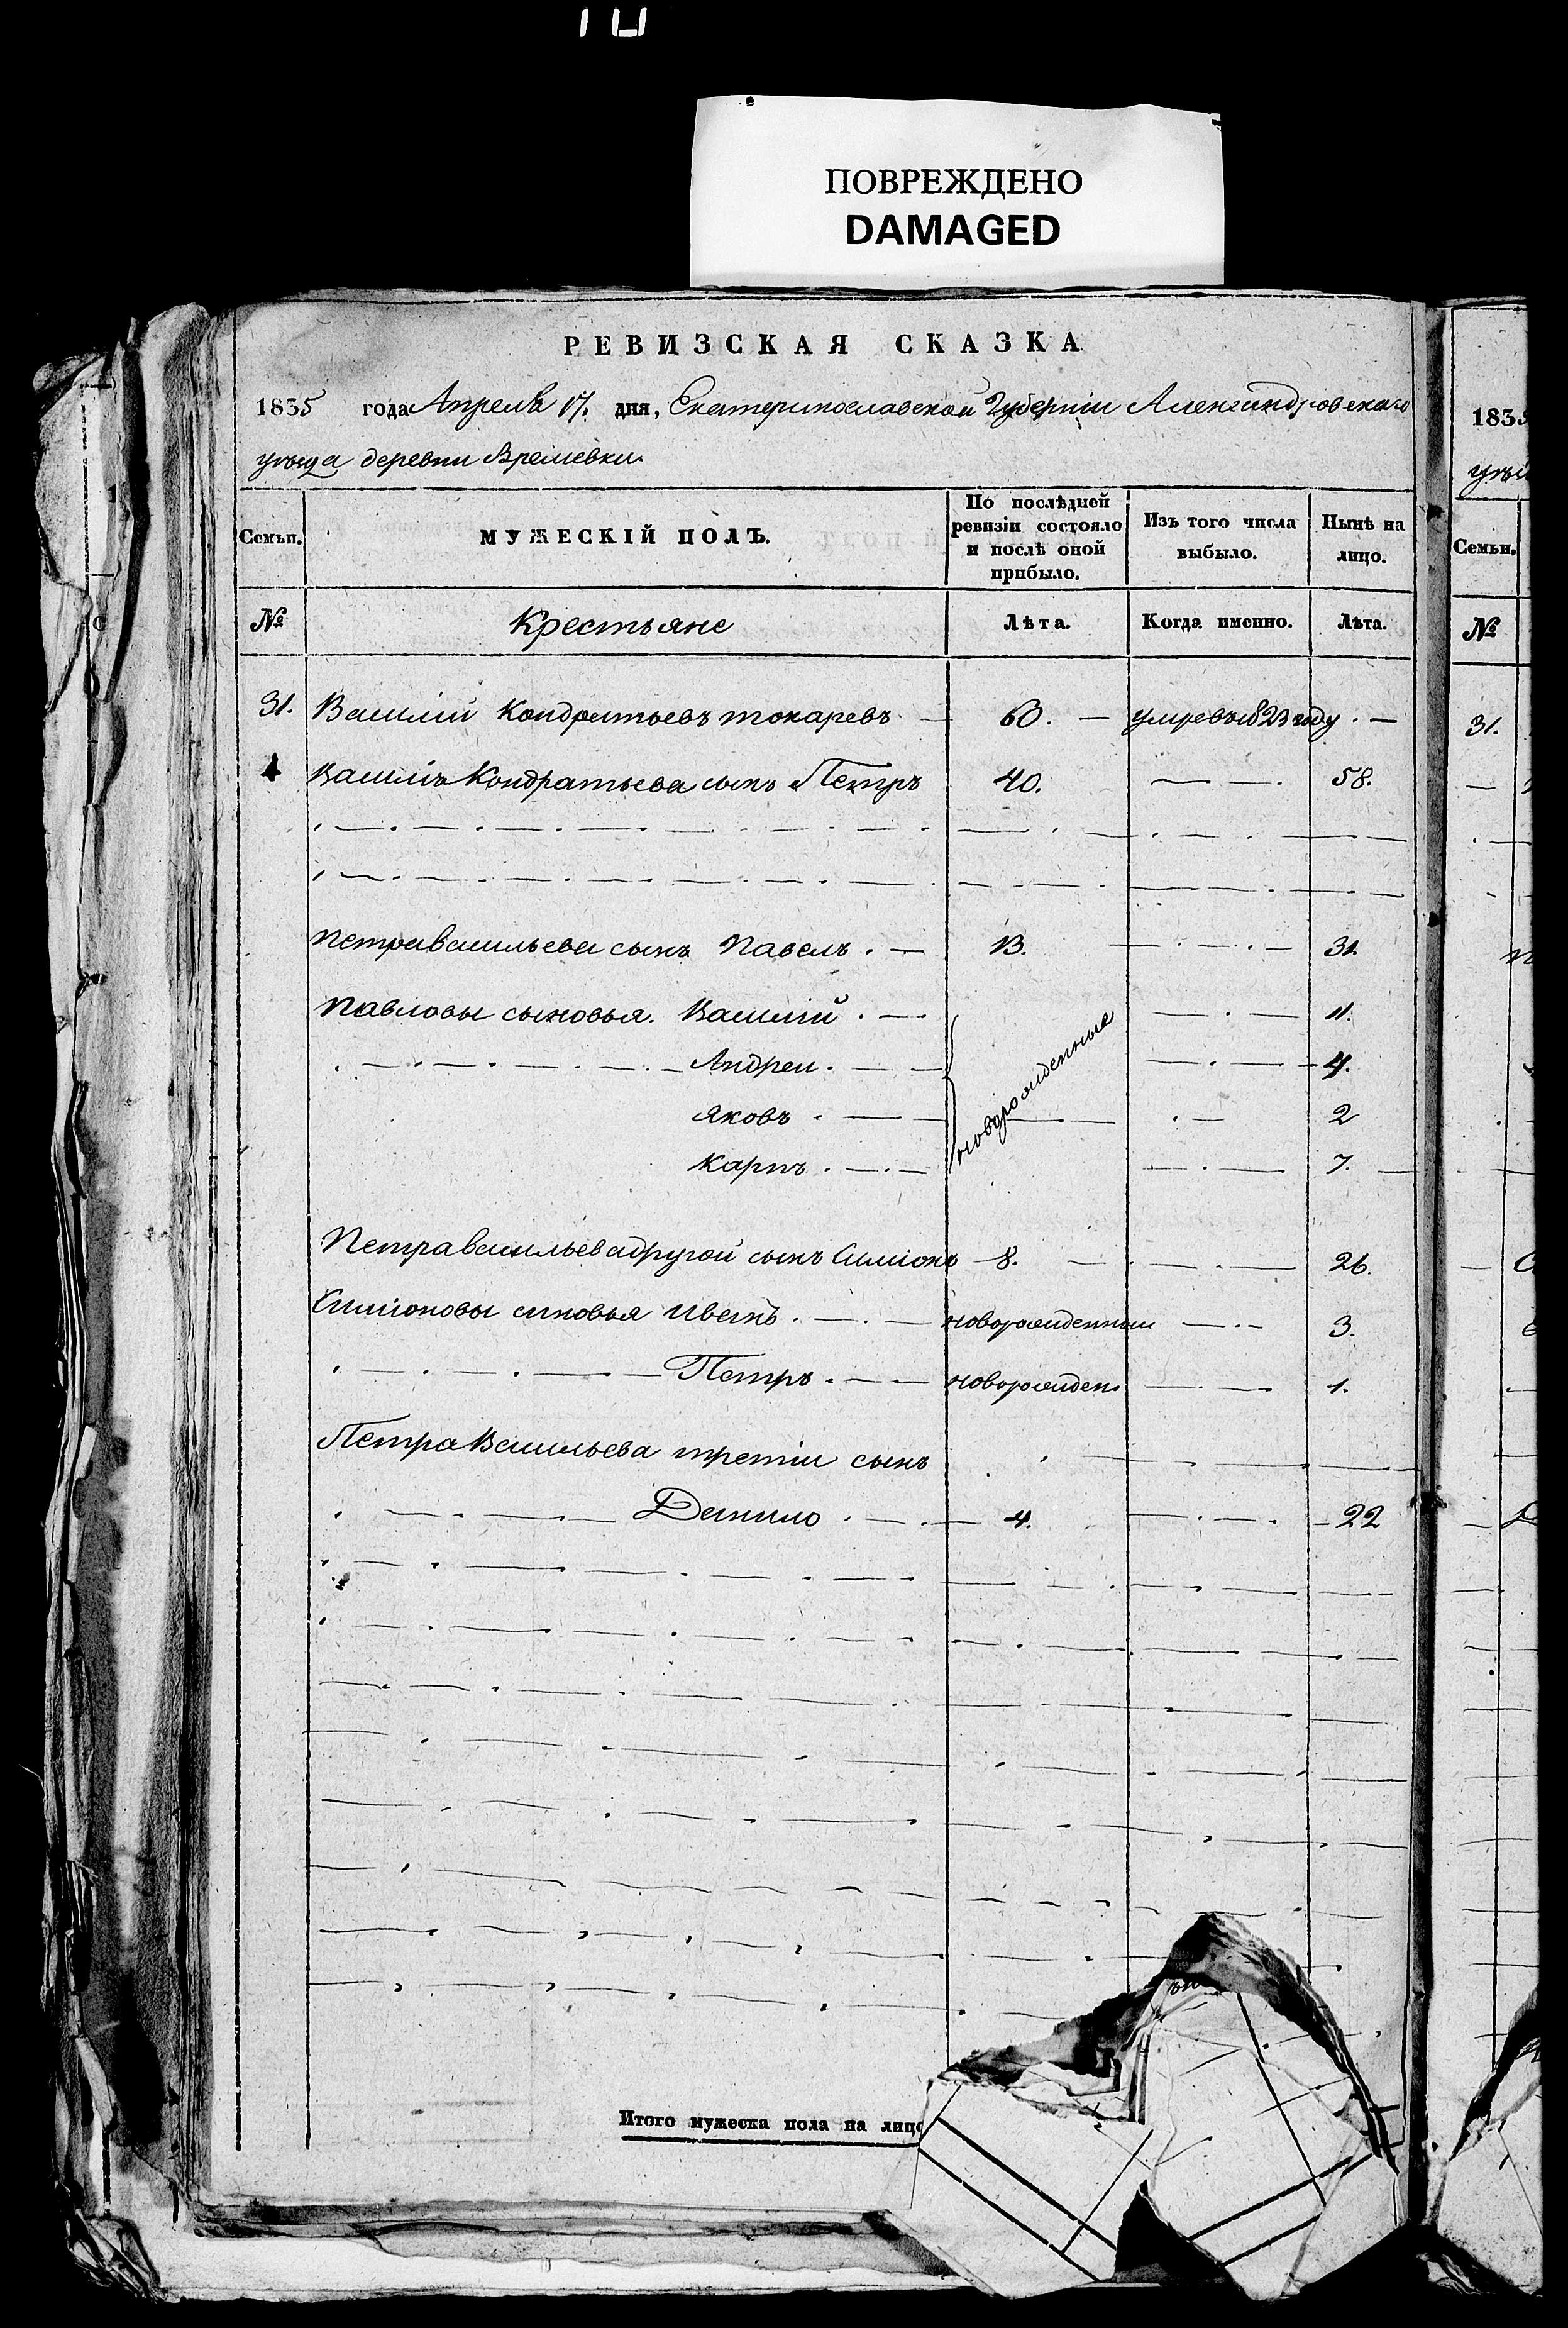 ПОВРЕЖДЕНО
DAMAGED
РЕВИЗСКАЯ СКАЗКА
1835 года Апреля 17. дня, Екатеринославской Губернии Александровскаго
уезда деревни Времевки
Семьи. МУЖЕСКІЙ ПОЛЪ. По послѣдней ревизіи состояло и послѣ оной прибыло. Изъ того числа выбыло. Нынѣ на лицо.
№ Крестьяне Лѣта. Когда именно. Лѣта.
31. Василій Кондратьевъ токаревъ 60. умре въ 1823 году
Василія Кондратьева сынъ Петръ 40. 58.
Петра васильева сынъ Павелъ 13. 31.
Павловы сыновья. Василій новорожденные 11.
Андреи 4.
Яковъ 2
Карпъ 7.
Петра васильева другой сынъ Симіонъ 8. 26.
Симіоновы сыновья иванъ новорожденныи 3.
Петръ новорожден 1.
Петра Васильева третіи сынъ
Данило 4. 22
Итого мужеска пола на лицо
1835
Семьи.
№
31.